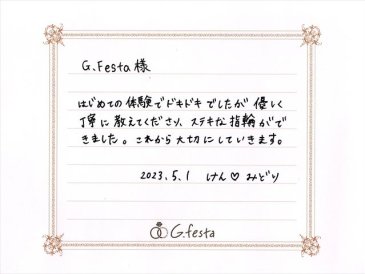 G.Festa様
はじめての体験でドキドキでしたが優しく
丁寧に教えてくださり、ステキな指輪がで
きました。これから大切にしていきます。
2023.5.1 けん♡みどり
G.festa